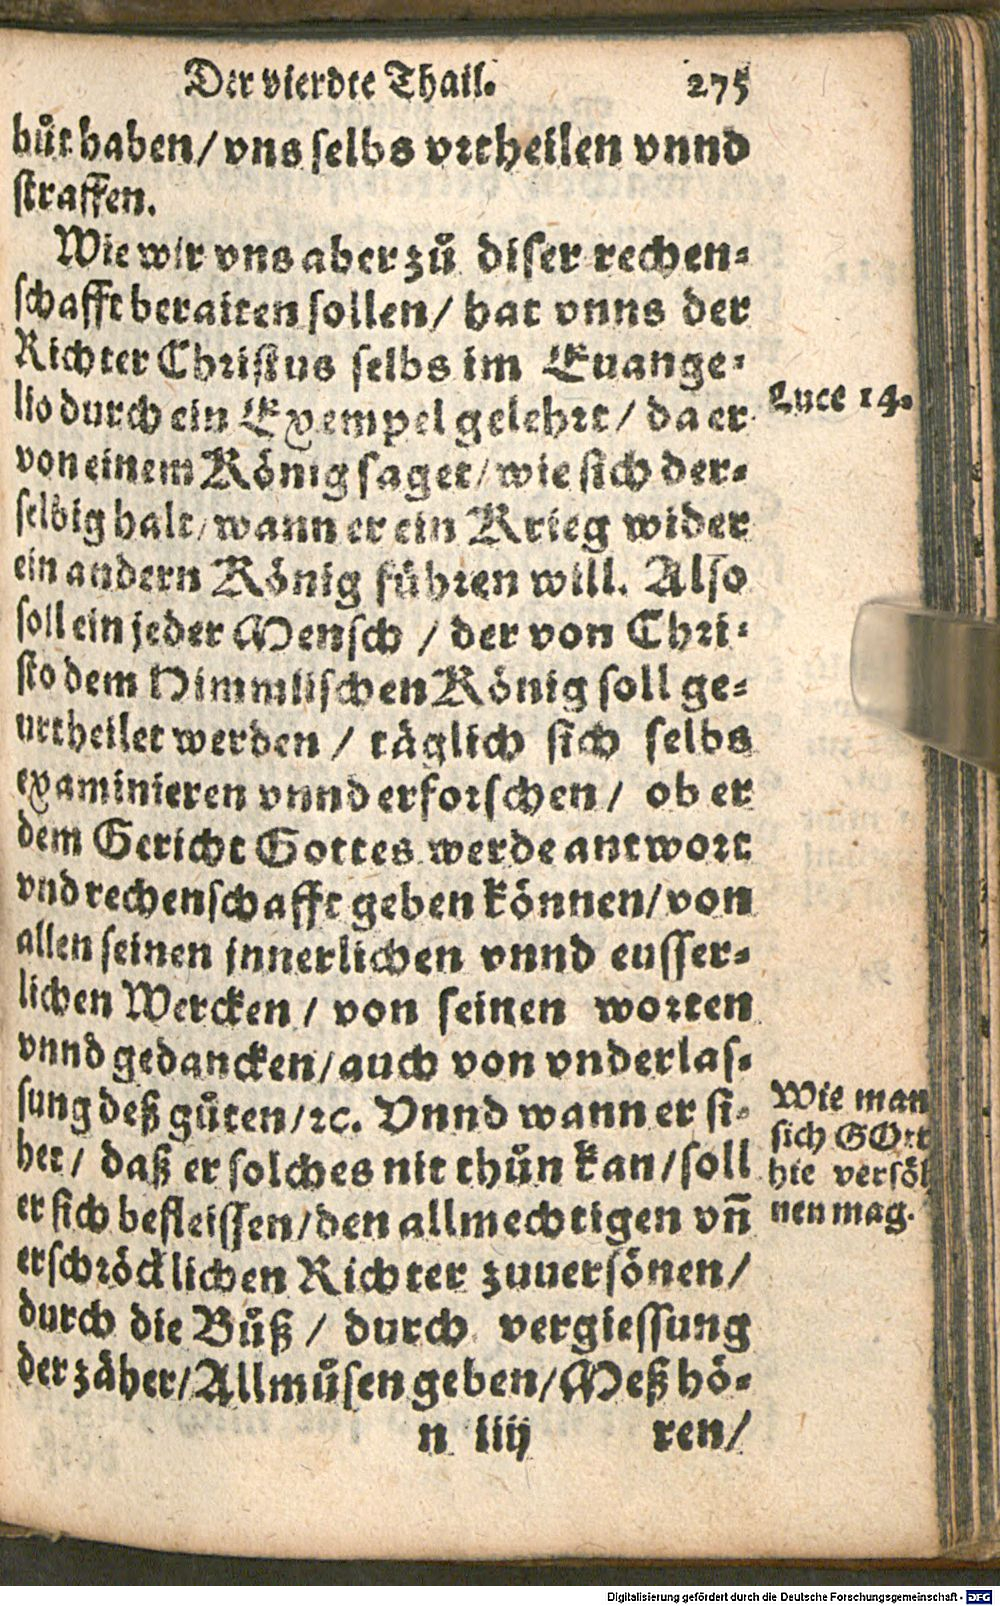 Der vierdte Thail. 275
bůt haben / vns selbs vrtheilen vnnd
straffen.
Wie wir vns aber zů diser rechen-
schafft beraiten sollen / hat vnns der
Richter Christus selbs im Euange-
lio durch ein Exempel gelehrt / da er
Luce 14.
von einem König saget / wie sich der-
selbig halt / wann er ein Krieg wider
ein andern König führen will. Also
soll ein jeder Mensch / der von Chri-
sto dem Himmlischen König soll ge-
urtheilet werden / täglich sich selbs
examinieren vnnd erforschen / ob er
dem Gericht Gottes werde antwort
vnd rechenschafft geben können / von
allen seinen jnnerlichen vnnd eusser-
lichen Wercken / von seinen worten
vnnd gedancken / auch von vnderlas-
sung deß gůten / ꝛc. Vnnd wann er si-
het / daß er solches nit thůn kan / soll
er sich befleissen / den allmechtigen vñ
erschröcklichen Richter zuuersönen /
durch die Bůß / durch vergiessung
der zäher / Allmůsen geben / Meß hö-
Wie man
sich GOtt
hie versöh
nen mag.
n iiij ren /
Digitalisierung gefördert durch die Deutsche Forschungsgemeinschaft - DFG